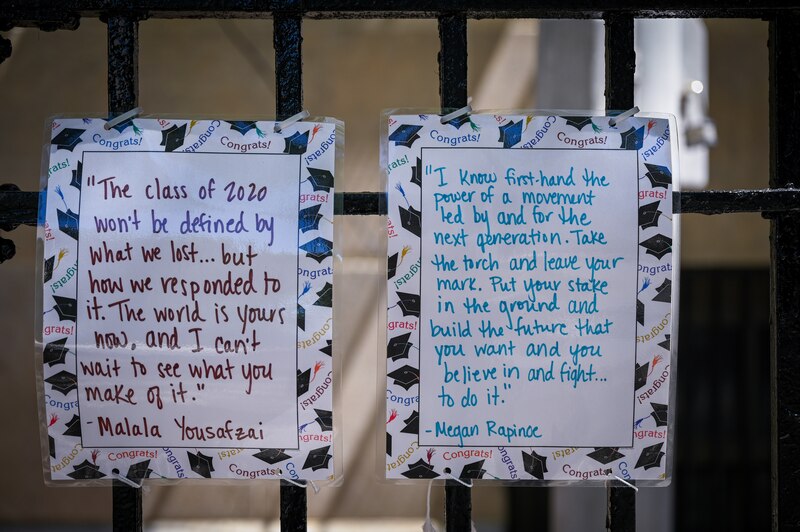 "The class of 2020
won't be defined by
what we lost... but
how we responded to
it. The world is yours
now, and I can't
wait to see what you
make of it."
- Malala Yousafzai
"I know first-hand the
power of a movement
led by and for the
next generation. Take
the torch and leave your
mark. Put your stake
in the ground and
build the future that
you want and you
believe in and fight...
to do it."
- Megan Rapinoe
Congrats!
Congrats!
Congrats!
Congrats!
Congrats!
Congrats!